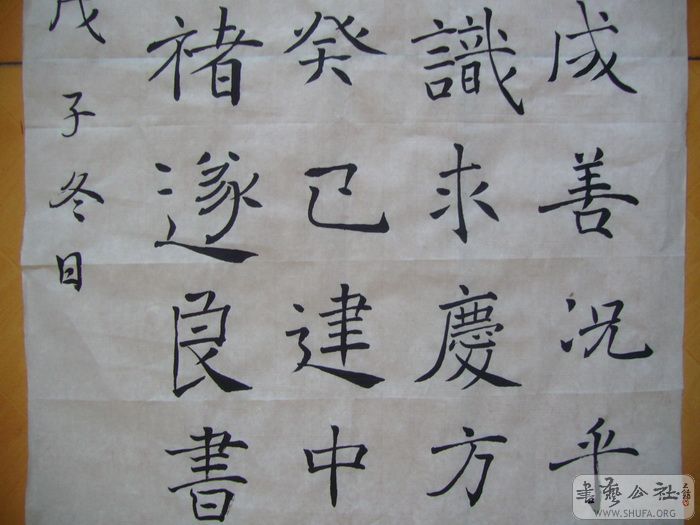 成善况乎
識求慶方
癸已建中
褚遂良書
戊子冬日
書藝公社
WWW.SHUFA.ORG